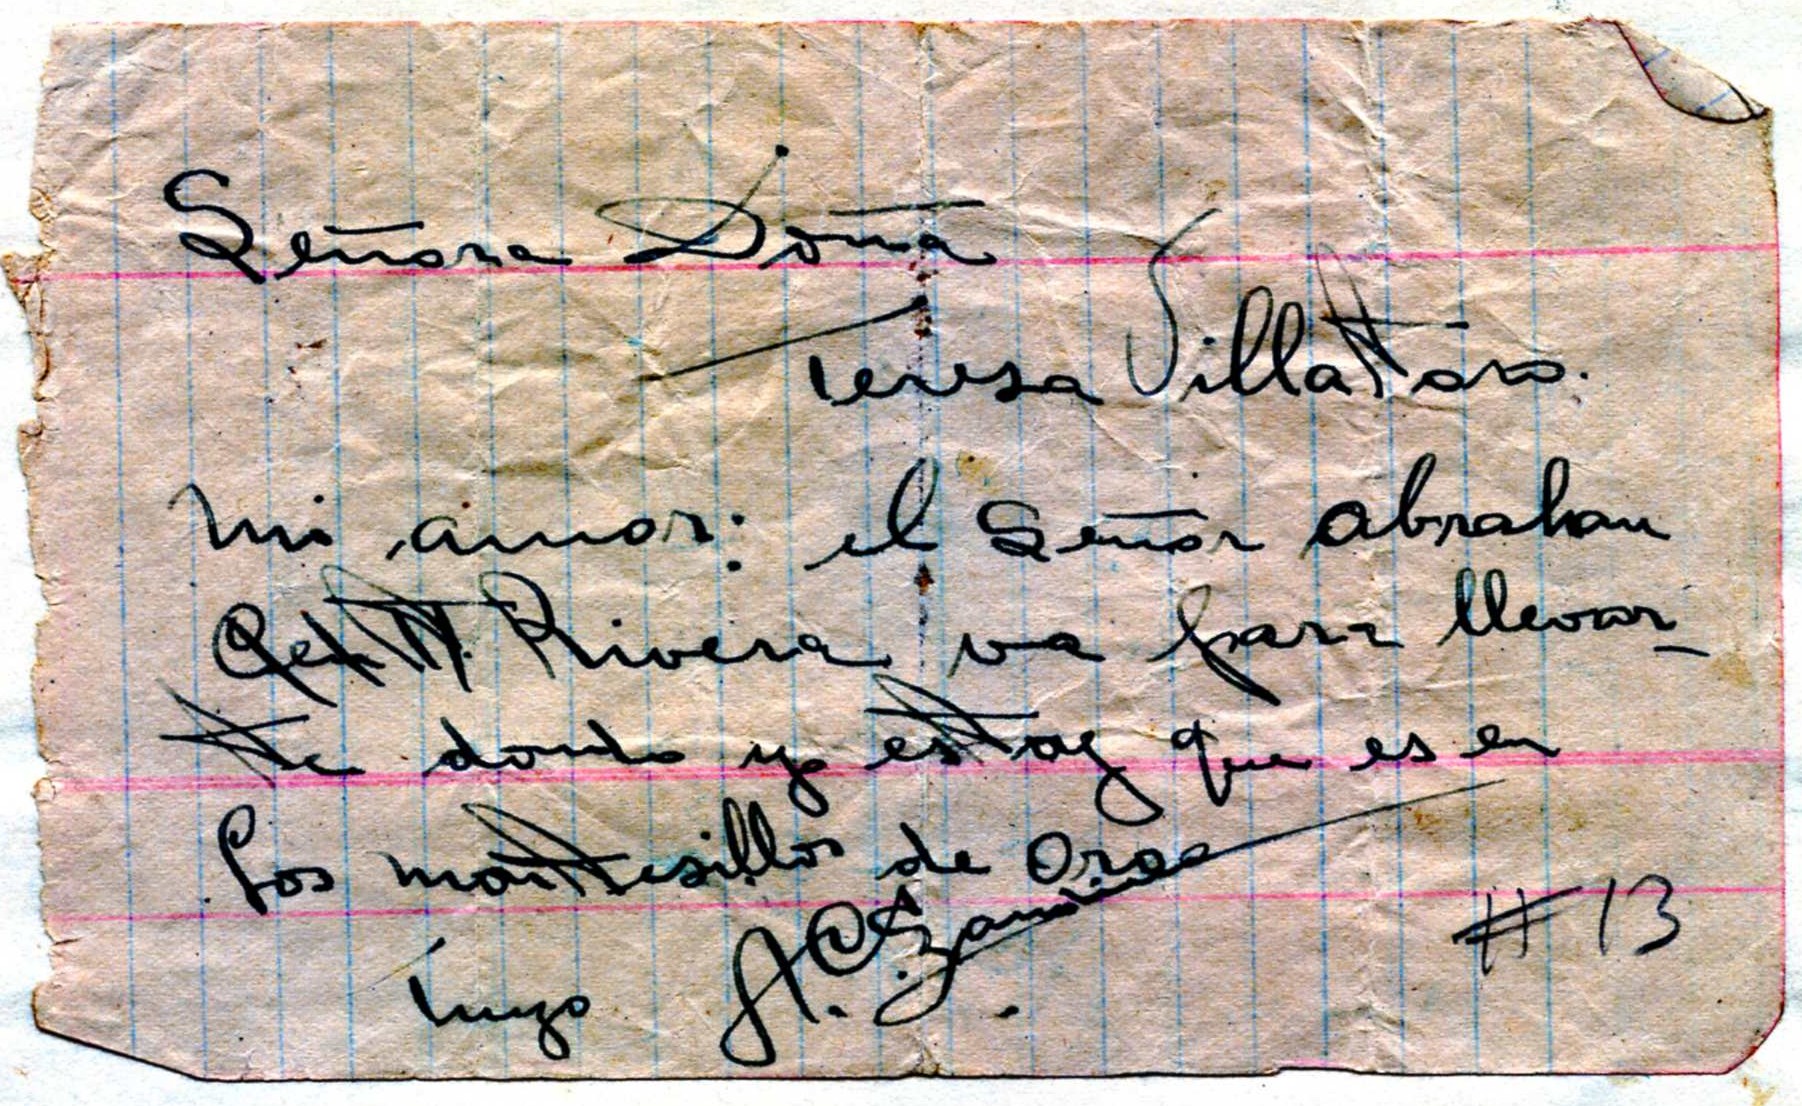 Señora Doña
Teresa Villatoro.
mi amor: el Señor abrahan
Rivera va para llevar-
te donde yo estoy que es en
los montesillos de Oro
tuyo A.C. Sandino.
# 13